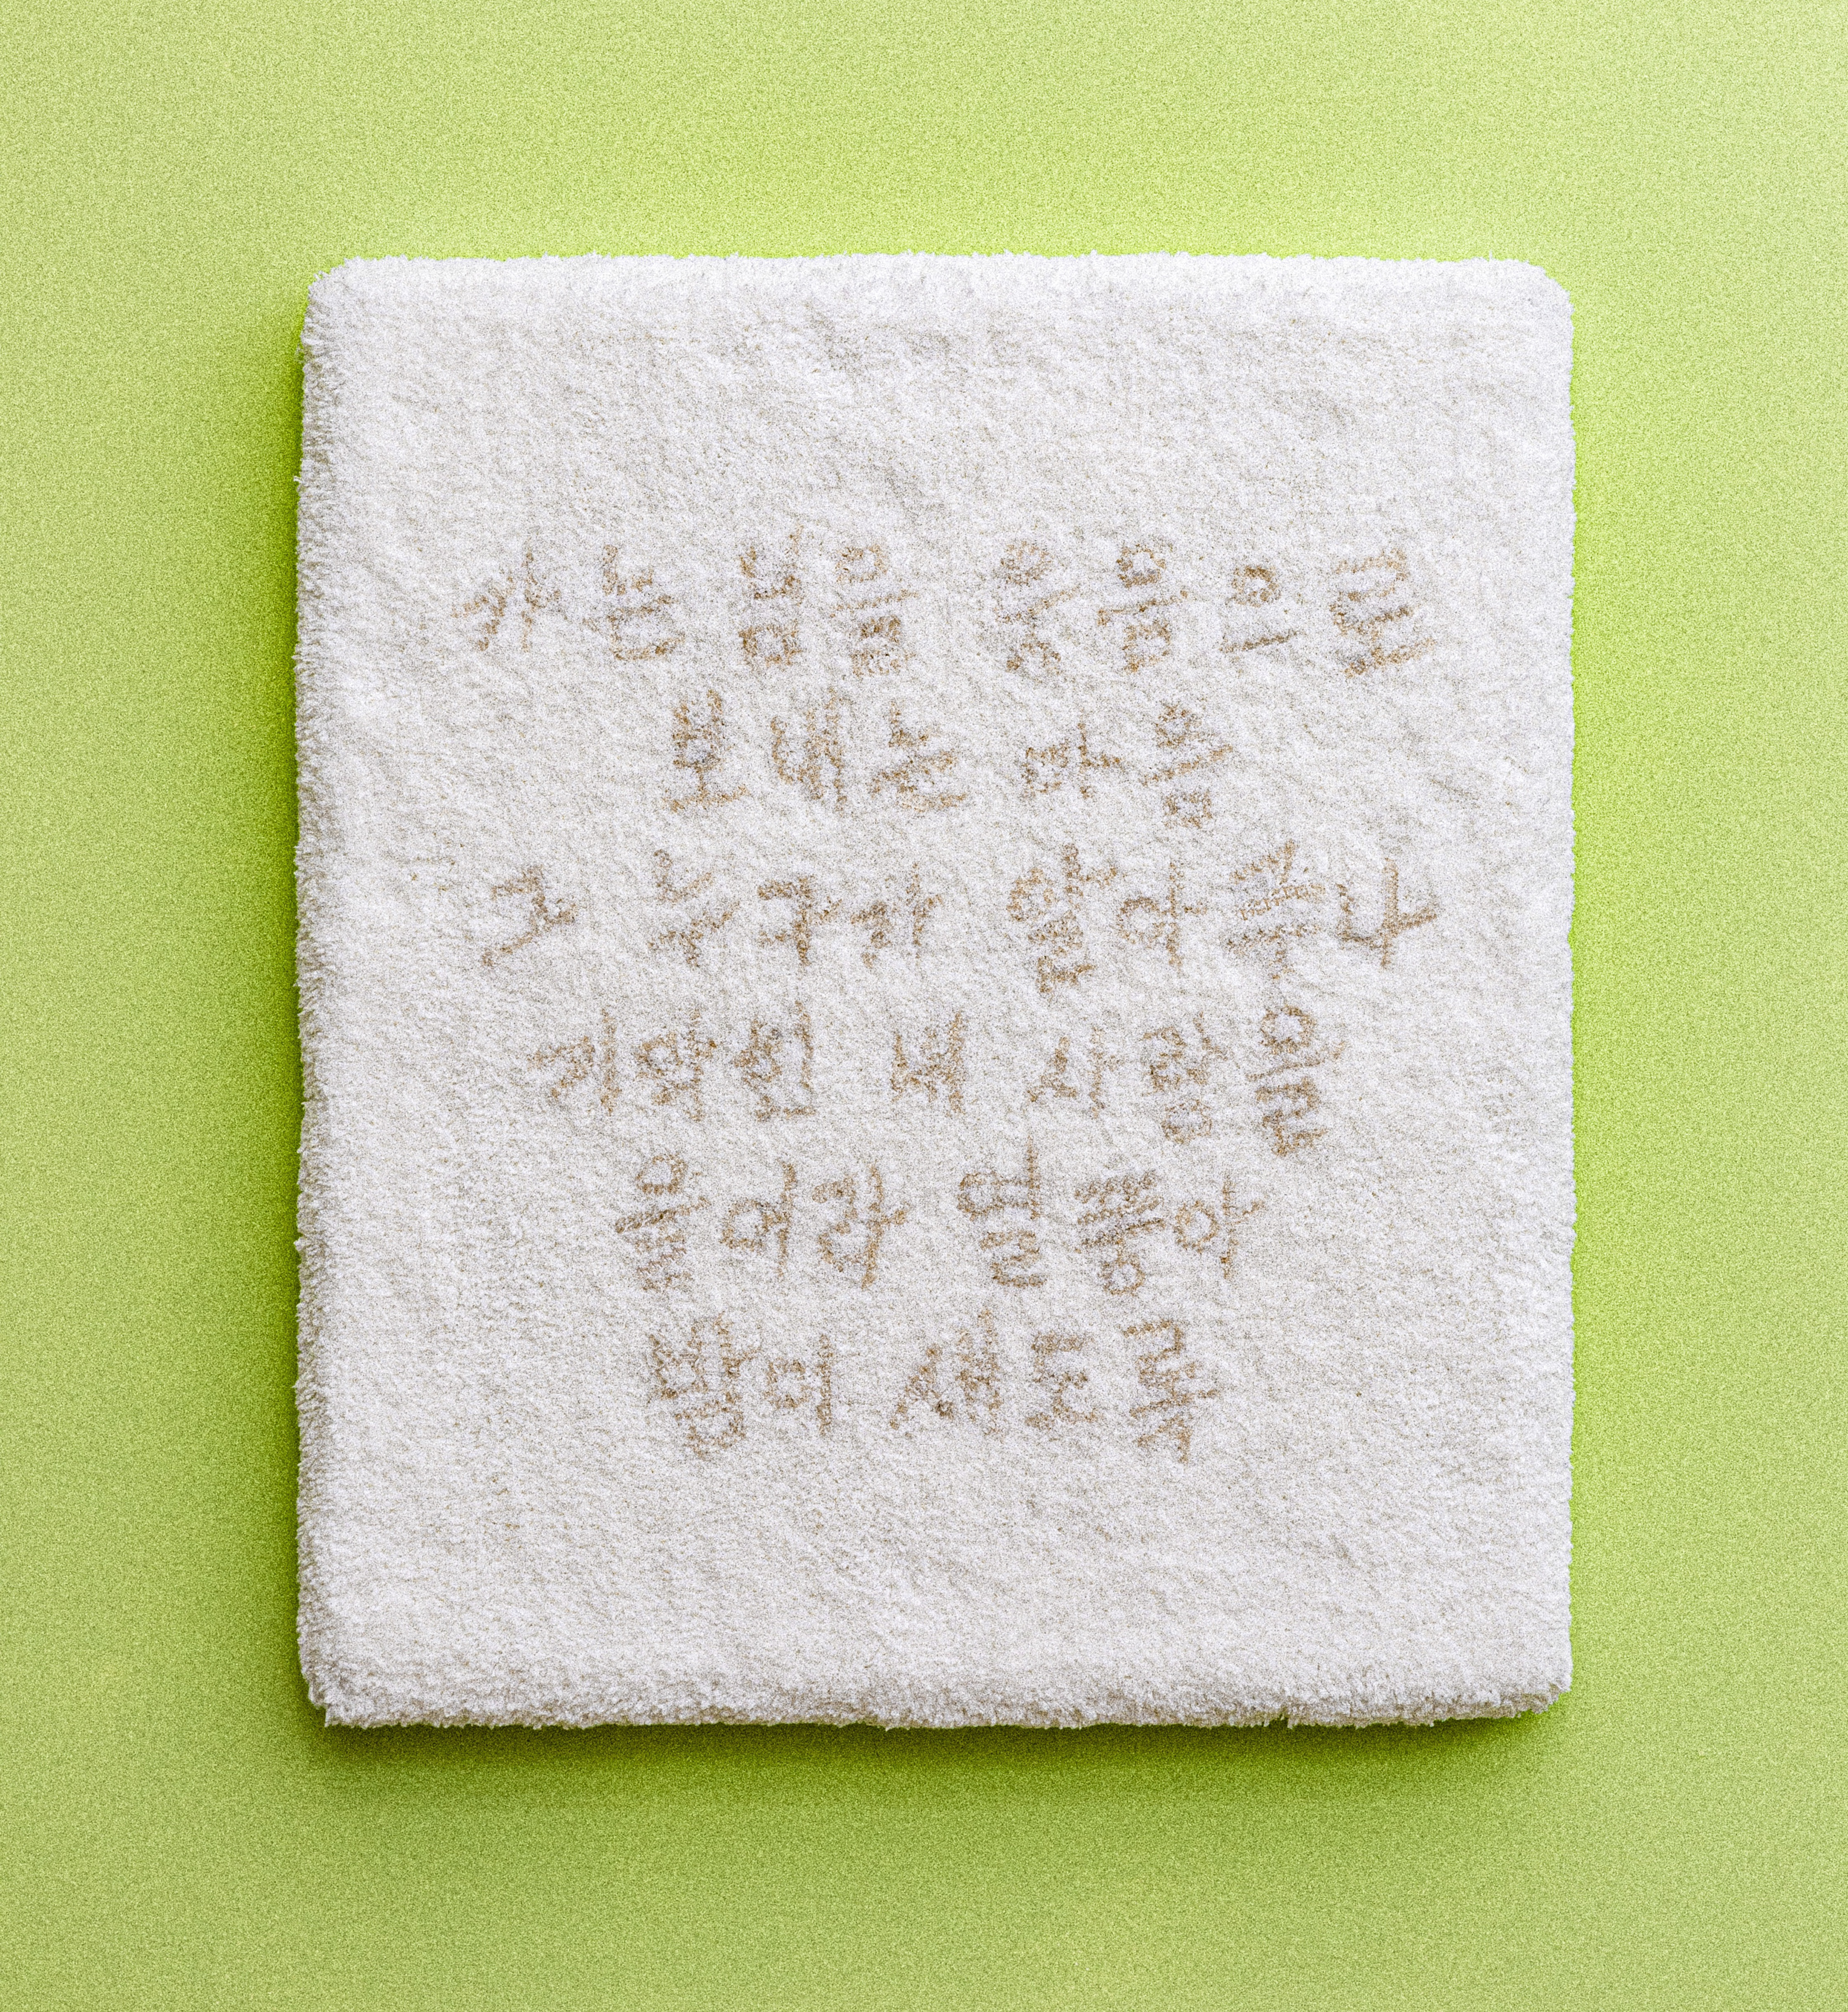 가는 님을 웃음으로
보내는 마음
그 누구가 알아주나
기막힌 내 사랑을
울어라 열풍아
밤이 새도록